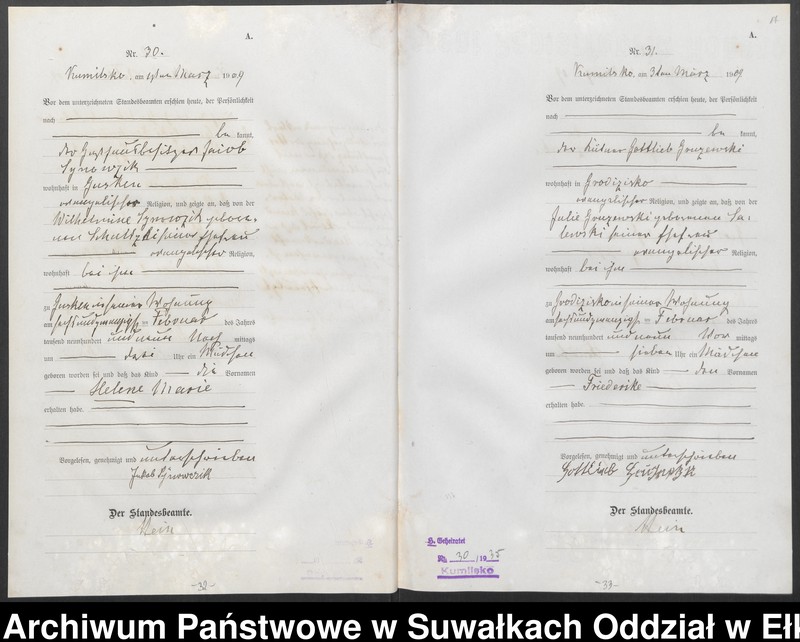 A.
Nr. 30.
Kumilsko, am 1ten März 1909
Vor dem unterzeichneten Standesbeamten erschien heute, der Persönlichkeit
nach
be kannt,
der Gasthausbesitzer Jacob
Synowzik
wohnhaft in Gusken
evangelischer Religion, und zeigte an, daß von der
Wilhelmine Synowzik gebore-
nen seiner Ehefrau
evangelischer Religion,
wohnhaft bei ihm
zu Gusken in seiner Wohnung
am sechsundzwanzigsten Februar des Jahres
tausend neunhundert und neun Nach mittags
um drei Uhr ein Mädchen
geboren worden sei und daß das Kind die Vornamen
Helene Marie
erhalten habe.
Vorgelesen, genehmigt und unterschrieben
Jakob Synowzik
Der Standesbeamte.
32
A.
Nr. 31.
Kumilsko, am 3ten März 1909
Vor dem unterzeichneten Standesbeamten erschien heute, der Persönlichkeit
nach
be kannt,
der Gottlieb
wohnhaft in Grodzisko
evangelischer Religion, und zeigte an, daß von der
Julie geborenen Sa-
lewski seiner Ehefrau
evangelischer Religion,
wohnhaft bei ihm
zu Grodzisko in seiner Wohnung
am sechsundzwanzigsten Februar des Jahres
tausend neunhundert und neun Vor mittags
um sieben Uhr ein Mädchen
geboren worden sei und daß das Kind den Vornamen
Friederike
erhalten habe.
Vorgelesen, genehmigt und unterschrieben
Gottlieb
Der Standesbeamte.
Geheiratet
No. 30 / 1935
Kumilsko
33
Archiwum Państwowe w Suwałkach Oddział w Eł